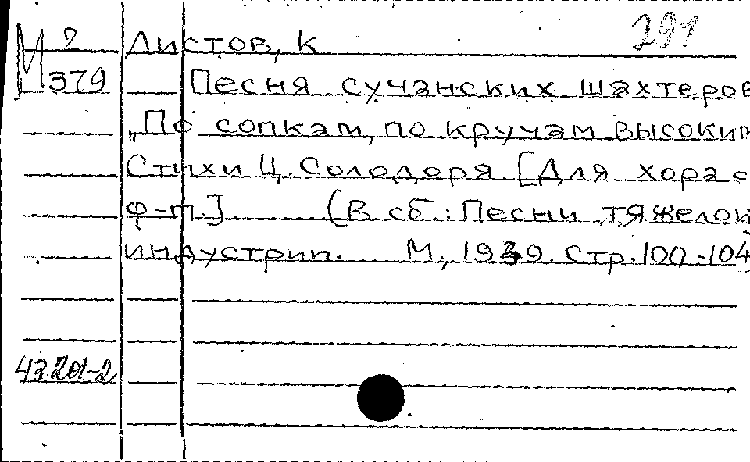 М 2
379
291
Листов, К
Песня сучанских шахтеров
„По сопкам, по кручам высоким
Стихи Ц. Солодоря [Для хора с
ф-п.] (В сб.: Песни тяжелой
индустрии. М., 1939. Стр. 100-104